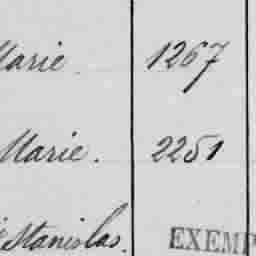 Marie. 1267
Marie. 2251
Stanislas. EXEMP